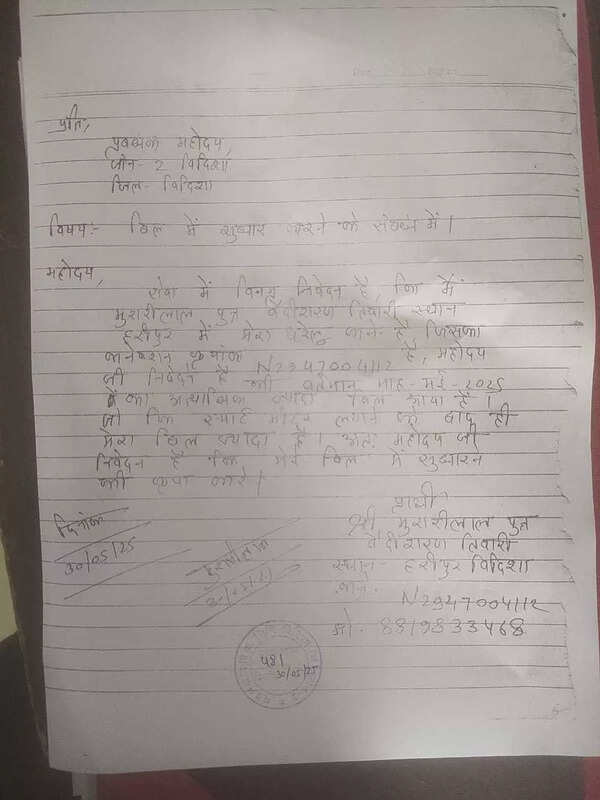 प्रति,
प्रबन्धक महोदय,
जोन-2 विदिशा
जिला- विदिशा
विषय:- बिल में सुधार करने के संबंध में।
महोदय,
सेवा में विनम्र निवेदन है, कि मैं
मुरारीलाल पुत्र वैदीशरण तिवारी स्थान
हरीपुर में मेरा घरेलू कने. है, जिसका
कनेक्शन क्रमांक N2947004112 है, महोदय
जी निवेदन है की वर्तमान माह-मई-2025
का अत्याधिक ज्यादा बिल आया है।
जो कि स्मार्ट मीटर लगाने के बाद ही
मेरा बिल ज्यादा है। अतः महोदय जी
निवेदन है कि मेरे बिल में सुधारन
की कृपा करे।
प्रार्थी
श्री मुरारीलाल पुत्र
वैदीशरण तिवारी
स्थान- हरीपुर विदिशा
कने. N2947004112
मो. 8819833468
दिनांक
30/05/25
481
30/05/25